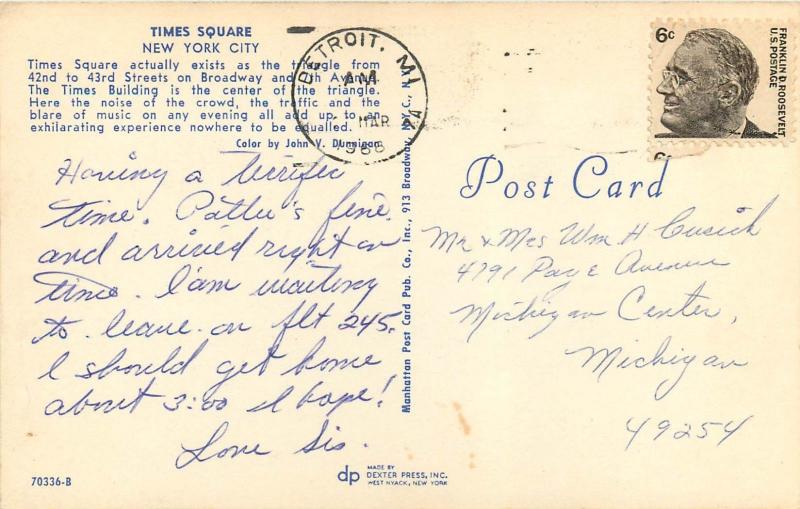 TIMES SQUARE
NEW YORK CITY
Times Square actually exists as the triangle from
42nd to 43rd Streets on Broadway and 7th Avenue.
The Times Building is the center of the triangle.
Here the noise of the crowd, the traffic and the
blare of music on any evening all add up to an
exhilarating experience nowhere to be equalled.
Color by John V. Dunnigan
Having a terrific
time. fine
and arrived right on
time. I am waiting
to leave on flt 245.
I should get home
about 3:00 I hope!
Love Sis.
70336-B
Manhattan Post Card Pub. Co., Inc., 913 Broadway, N.Y.C., N.Y.
dp
MADE BY
DEXTER PRESS, INC.
WEST NYACK, NEW YORK
DETROIT, MI
AM
MAR
6c
FRANKLIN D. ROOSEVELT
U.S. POSTAGE
Post Card
Mr & Mrs Wm H Cusick
4791 Page Avenue
Michigan Center,
Michigan
49254